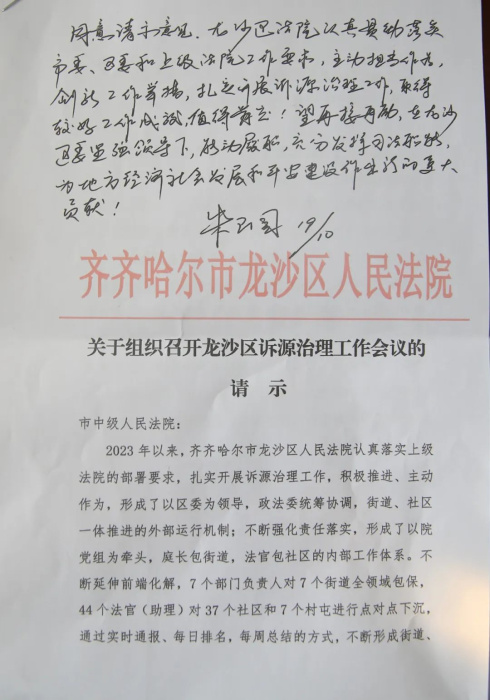 同意请示意见。龙沙区法院认真贯彻落实
市委、区委和上级法院工作要求，主动担当作为，
创新工作举措，扎实开展诉源治理工作，取得
较好工作成效，值得肯定！望再接再励，在龙沙
区委坚强领导下，能动履职，充分发挥司法职能，
为地方经济社会发展和平安建设作出新的更大
贡献！
19/10
齐齐哈尔市龙沙区人民法院
关于组织召开龙沙区诉源治理工作会议的
请 示
市中级人民法院：
2023 年以来，齐齐哈尔市龙沙区人民法院认真落实上级
法院的部署要求，扎实开展诉源治理工作，积极推进、主动
作为，形成了以区委为领导，政法委统筹协调，街道、社区
一体推进的外部运行机制；不断强化责任落实，形成了以院
党组为牵头，庭长包街道，法官包社区的内部工作体系。不
断延伸前端化解，7 个部门负责人对 7 个街道全领域包保，
44 个法官（助理）对 37 个社区和 7 个村屯进行点对点下沉，
通过实时通报、每日排名，每周总结的方式，不断形成街道、